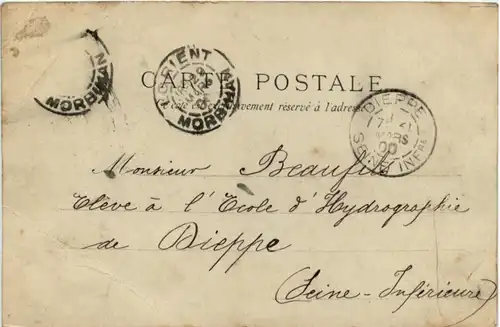 MORBIHAN
LORIENT
MORBIHAN
CARTE POSTALE
Ce côté est exclusivement réservé à l'adresse
DIEPPE
MARS
00
SEINE INFRE
Monsieur Beaufils
Elève à l'Ecole d'Hydrographie
de Dieppe
(Seine-Inférieure)